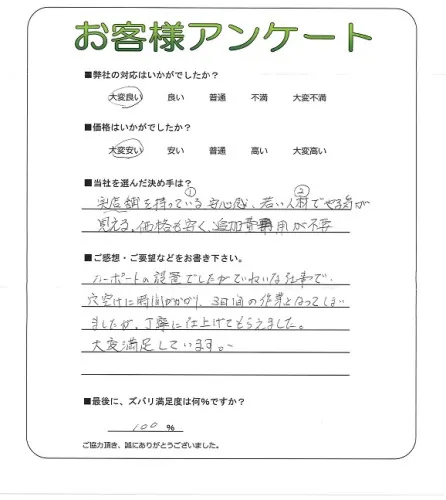 お客様アンケート
■弊社の対応はいかがでしたか？
大変良い 良い 普通 不満 大変不満
■価格はいかがでしたか？
大変安い 安い 普通 高い 大変高い
■当社を選んだ決め手は？
① ②
実店舗を持っている安心感、若い人材でやる気が
見える。価格も安く、追加費用が不要
■ご感想・ご要望などをお書き下さい。
カーポートの設置でしたがていねいな仕事で、
穴空けに時間がかかり、3日間の作業となってしまい
ましたが、丁寧に仕上げてもらえました。
大変満足しています。
■最後に、ズバリ満足度は何%ですか？
100 %
ご協力頂き、誠にありがとうございました。